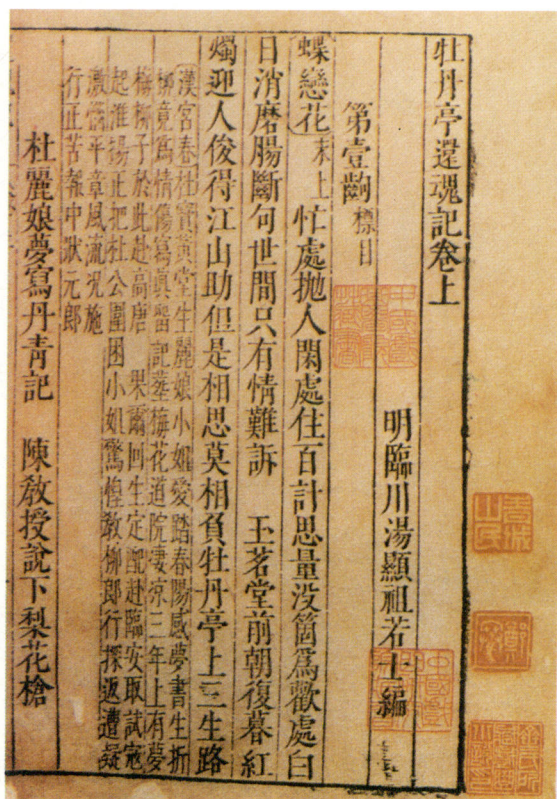 牡丹亭還魂記卷上
明臨川湯顯祖若士編
第壹齣 標目
蝶戀花 末上 忙處拋人閑處住百計思量沒箇爲歡處白
日消磨腸斷句世間只有情難訴 玉茗堂前朝復暮紅
燭迎人俊得江山助但是相思莫相負牡丹亭上三生路
漢宮春杜寶黃堂生麗娘小姐愛踏春陽感夢書生折
柳竟爲情傷寫眞留記葬梅花道院淒涼三年上有夢
梅柳子於此赴高唐 果爾回生定配赴臨安取試寇
起淮揚正把杜公圍困小姐驚惶敎柳郎行探返遭疑
激惱平章風流況施
行正苦報中狀元郎
杜麗娘夢寫丹青記 陳敎授說下梨花槍